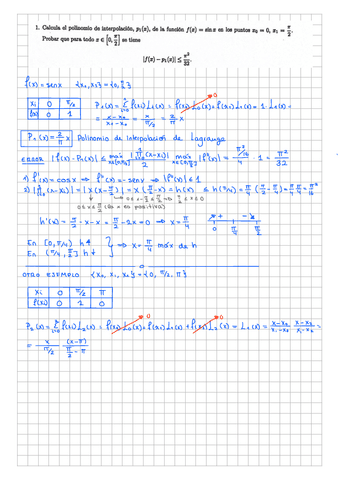 1. Calcula el polinomio de interpolación, p₁(x), de la función f(x) = sin x en los puntos x₀ = 0, x₁ = π/2.
Probar que para todo x ∈ [0, π/2] se tiene
|f(x) − p₁(x)| ≤ π²/32.
f(x) = sen x {x₀, x₁} = {0, π/2}
xi 0 π/2
f(xi) 0 1
P₁(x) = Σ f(xi) Li(x) = f(x₀) L₀(x) + f(x₁) L₁(x) = 1 · L₁(x) =
= x−x₀/x₁−x₀ = x/π/2 = 2/π x
P₁(x) = 2/π x Polinomio de interpolación de Lagrange
ERROR |f(x) − P₁(x)| ≤ máx |π(x−xi)|/2 máx |f''(x)| = π²/16/2 · 1 = π²/32
1) f'(x) = cos x ⇒ f''(x) = − sen x ⇒ |f''(x)| ≤ 1
2) |π(x−xi)| = |x(x−π/2)| = x(π/2−x) = h(x) ≤ h(π/4) = π/4 (π/2 − π/4) = π/4 π/4 = π²/16
h'(x) = π/2 − x − x = π/2 − 2x = 0 ⇒ x = π/4
0 π/4 π/2
En [0, π/4) h↑
En (π/4, π/2] h↓
⇒ x = π/4 máx de h
OTRO EJEMPLO {x₀, x₁, x₂} = {0, π/2, π}
xi 0 π/2 π
f(xi) 0 1 0
P₂(x) = Σ f(xi) Li(x) = f(x₀) L₀(x) + f(x₁) L₁(x) + f(x₂) L₂(x) = L₁(x) = x−x₀/x₁−x₀ x−x₂/x₁−x₂ =
= x/π/2 (x−π)/π/2 − π